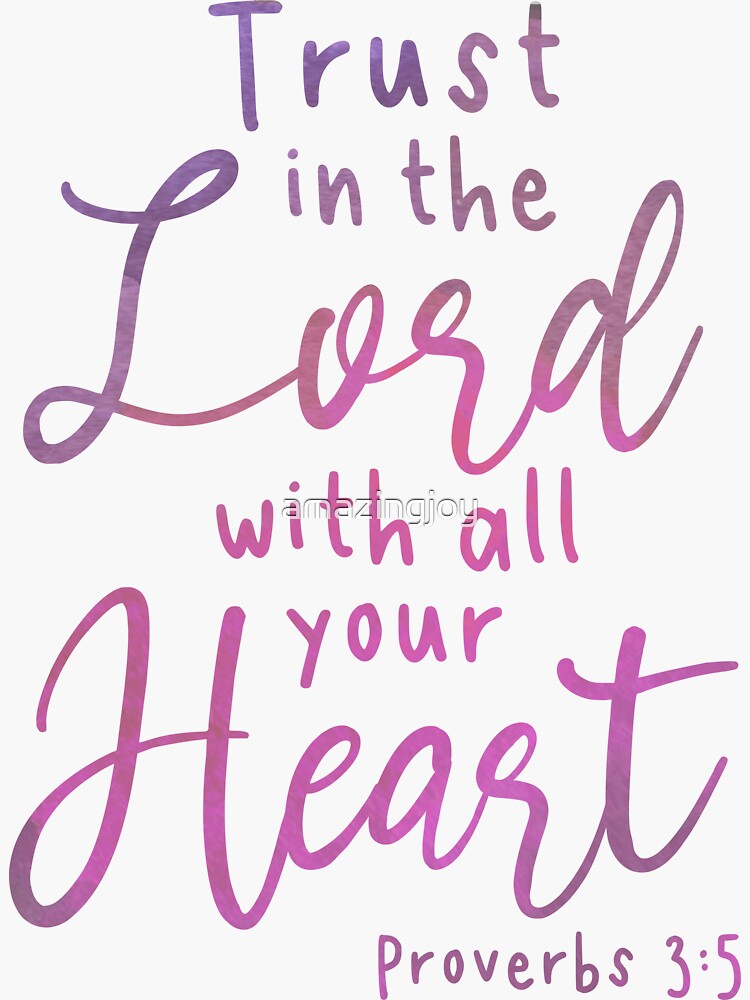 Trust
in the
Lord
with all
amazingjoy
your
Heart
Proverbs 3:5